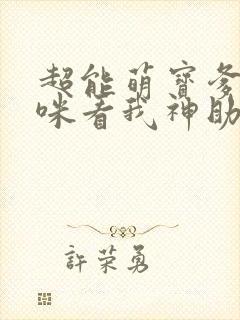 超能萌寶爹
咪看我神助
許荣勇